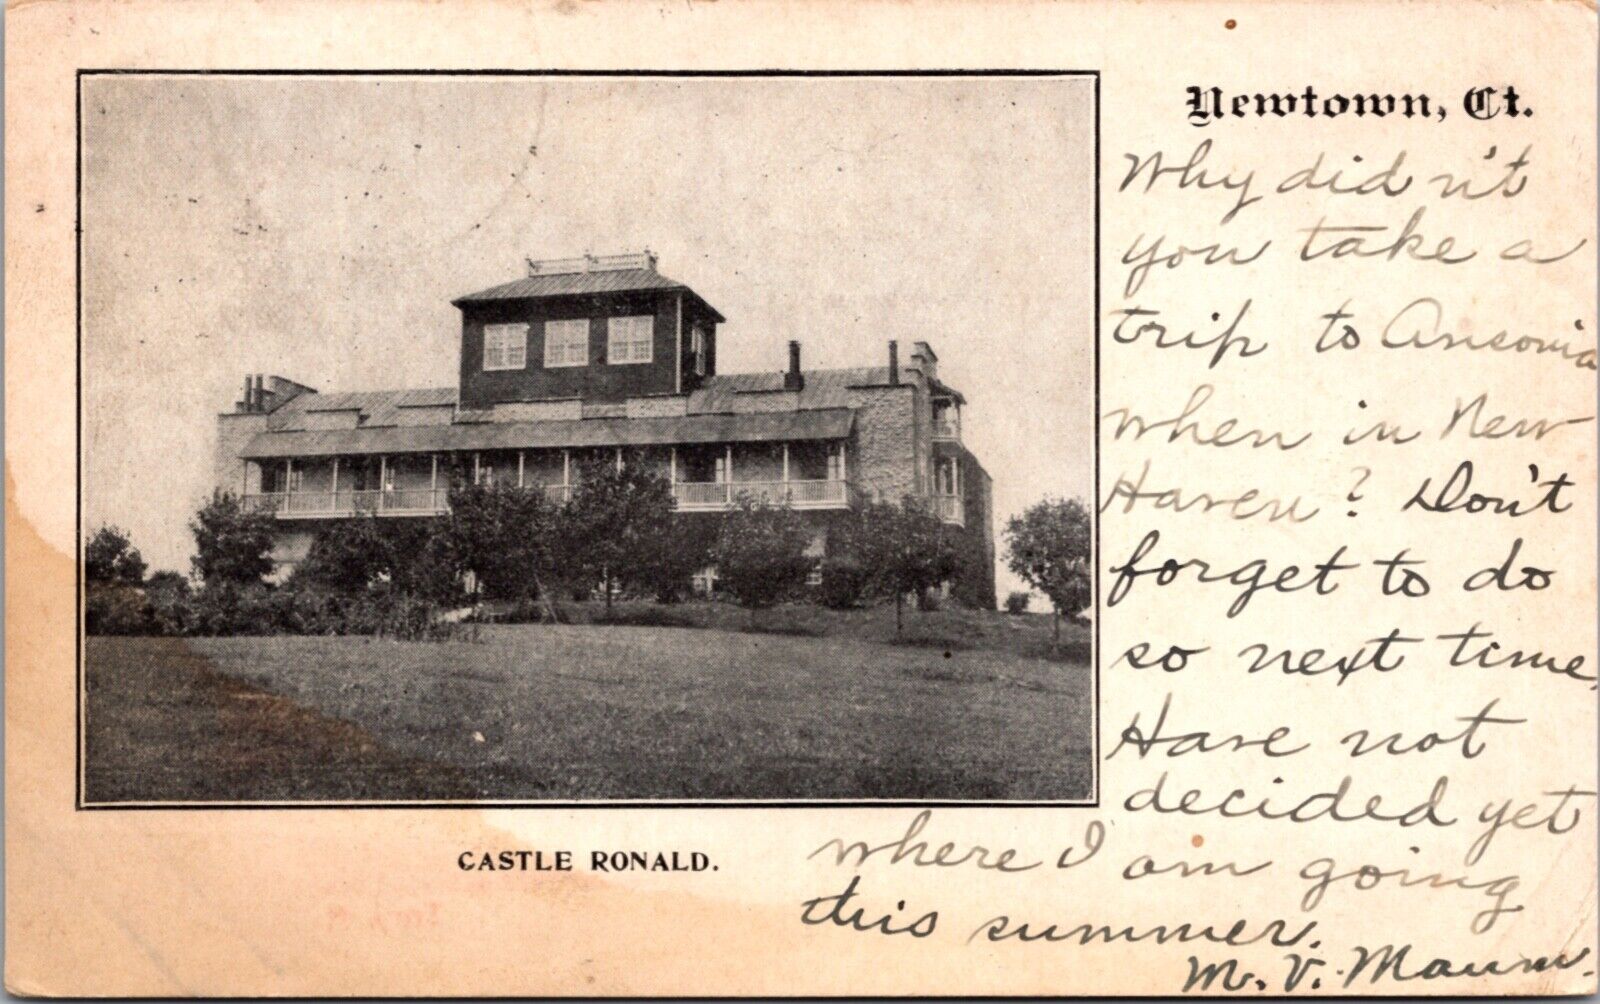 Newtown, Ct.
Why did n't
you take a
trip to Ansonia
when in New
Haven? Don't
forget to do
so next time.
Have not
decided yet
where I am going
this summer.
M. V.
CASTLE RONALD.